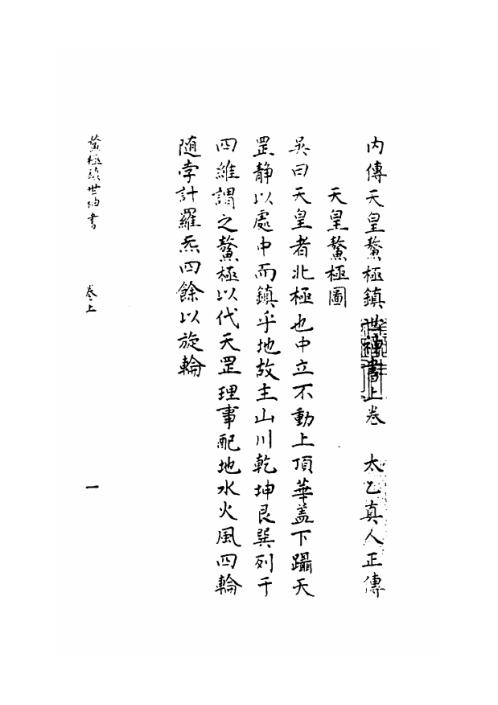 內傳天皇鰲極鎮世神書上卷　太乙真人正傳
天皇鰲極圖
吳曰天皇者北極也中立不動上頂華蓋下躡天
罡静以處中而鎮乎地故主山川乾坤艮巽列于
四維謂之鰲極以代天罡理事配地水火風四輪
随孛計羅炁四餘以旋輪
鰲極鎮世神書　卷上　一